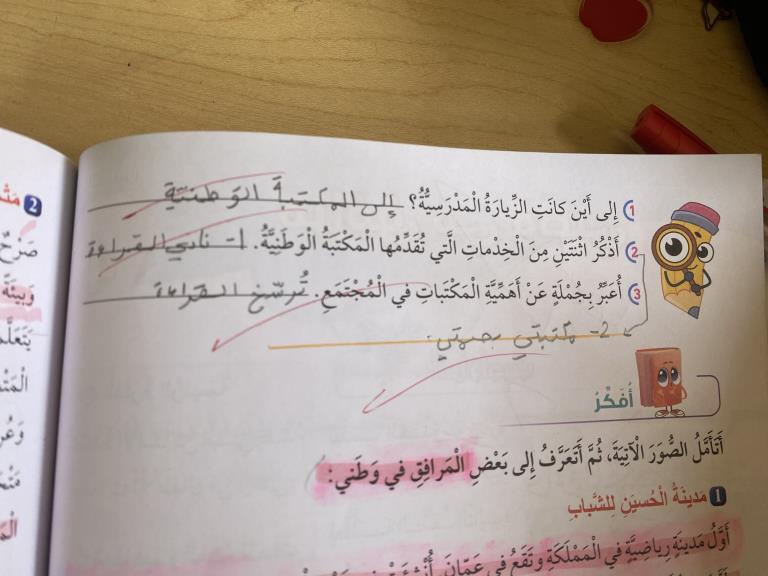 1 إِلى أَيْنَ كانَتِ الزِّيارَةُ الْمَدْرَسِيَّةُ؟ إلى المكتبة الوطنيّة
2 أَذْكُرُ اثْنَتَيْنِ مِنَ الْخِدْماتِ الَّتي تُقَدِّمُها الْمَكْتَبَةُ الْوَطَنِيَّةُ. 1- نادي القراءة
3 أُعَبِّرُ بِجُمْلَةٍ عَنْ أَهَمِّيَّةِ الْمَكْتَباتِ في الْمُجْتَمَعِ. تُرسّخ القراءة
2- مكتبتي
أُفَكِّرُ
أَتَأَمَّلُ الصُّوَرَ الْآتِيَةَ، ثُمَّ أَتَعَرَّفُ إِلى بَعْضِ الْمَرافِقِ في وَطَني:
1 مَدينَةُ الْحُسَيْنِ لِلشَّبابِ
أَوَّلُ مَدينَةٍ رِياضِيَّةٍ في الْمَمْلَكَةِ وَتَقَعُ في عَمّانَ،
2
صَرْحٌ